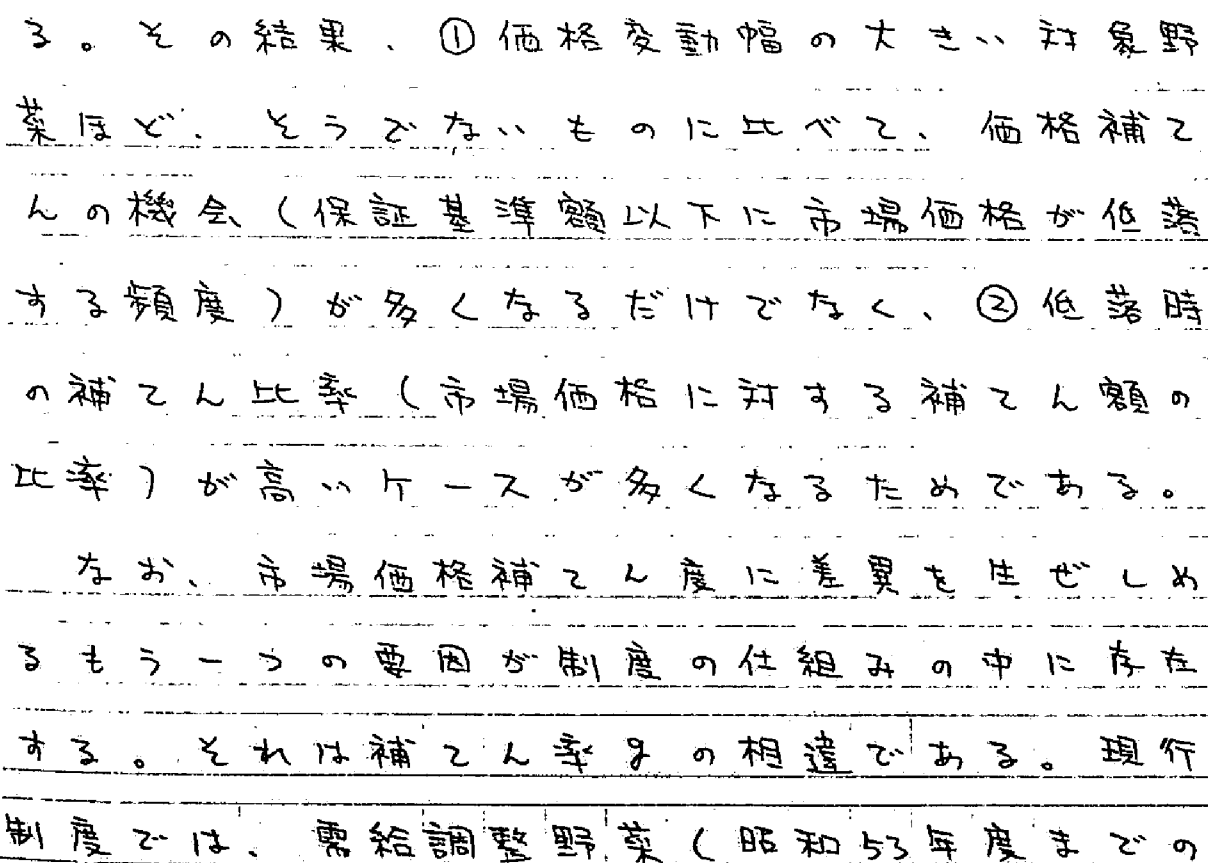 る。その結果、①価格変動幅の大きい対象野
菜ほど、そうでないものに比べて、価格補て
んの機会(保証基準額以下に市場価格が低落
する頻度)が多くなるだけでなく、②低落時
の補てん比率(市場価格に対する補てん額の
比率)が高いケースが多くなるためである。
なお、市場価格補てん度に差異を生ぜしめ
るもう一つの要因が制度の仕組みの中に存在
する。それは補てん率gの相違である。現行
制度では、需給調整野菜(昭和53年度までの